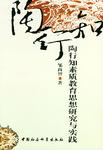 陶行知
陶行知素质教育思想研究与实践
著
中国社会科学出版社